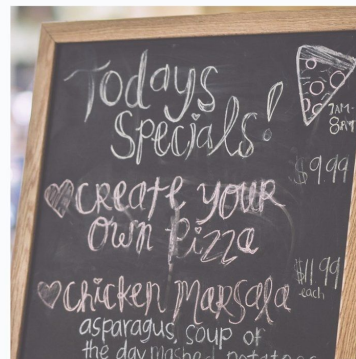 Todays
Specials!
7AM-
8PM
$9.99
♡ CREATE YOUR
OWN PIZZA
$11.99
each
♡ CHICKEN MARSALA
asparagus, soup of
the day, mashed potatoes